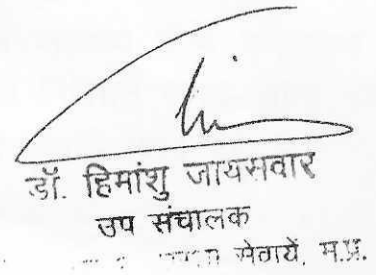 डॉ. हिमांशु जायसवार
उप संचालक
सेवायें, म.प्र.